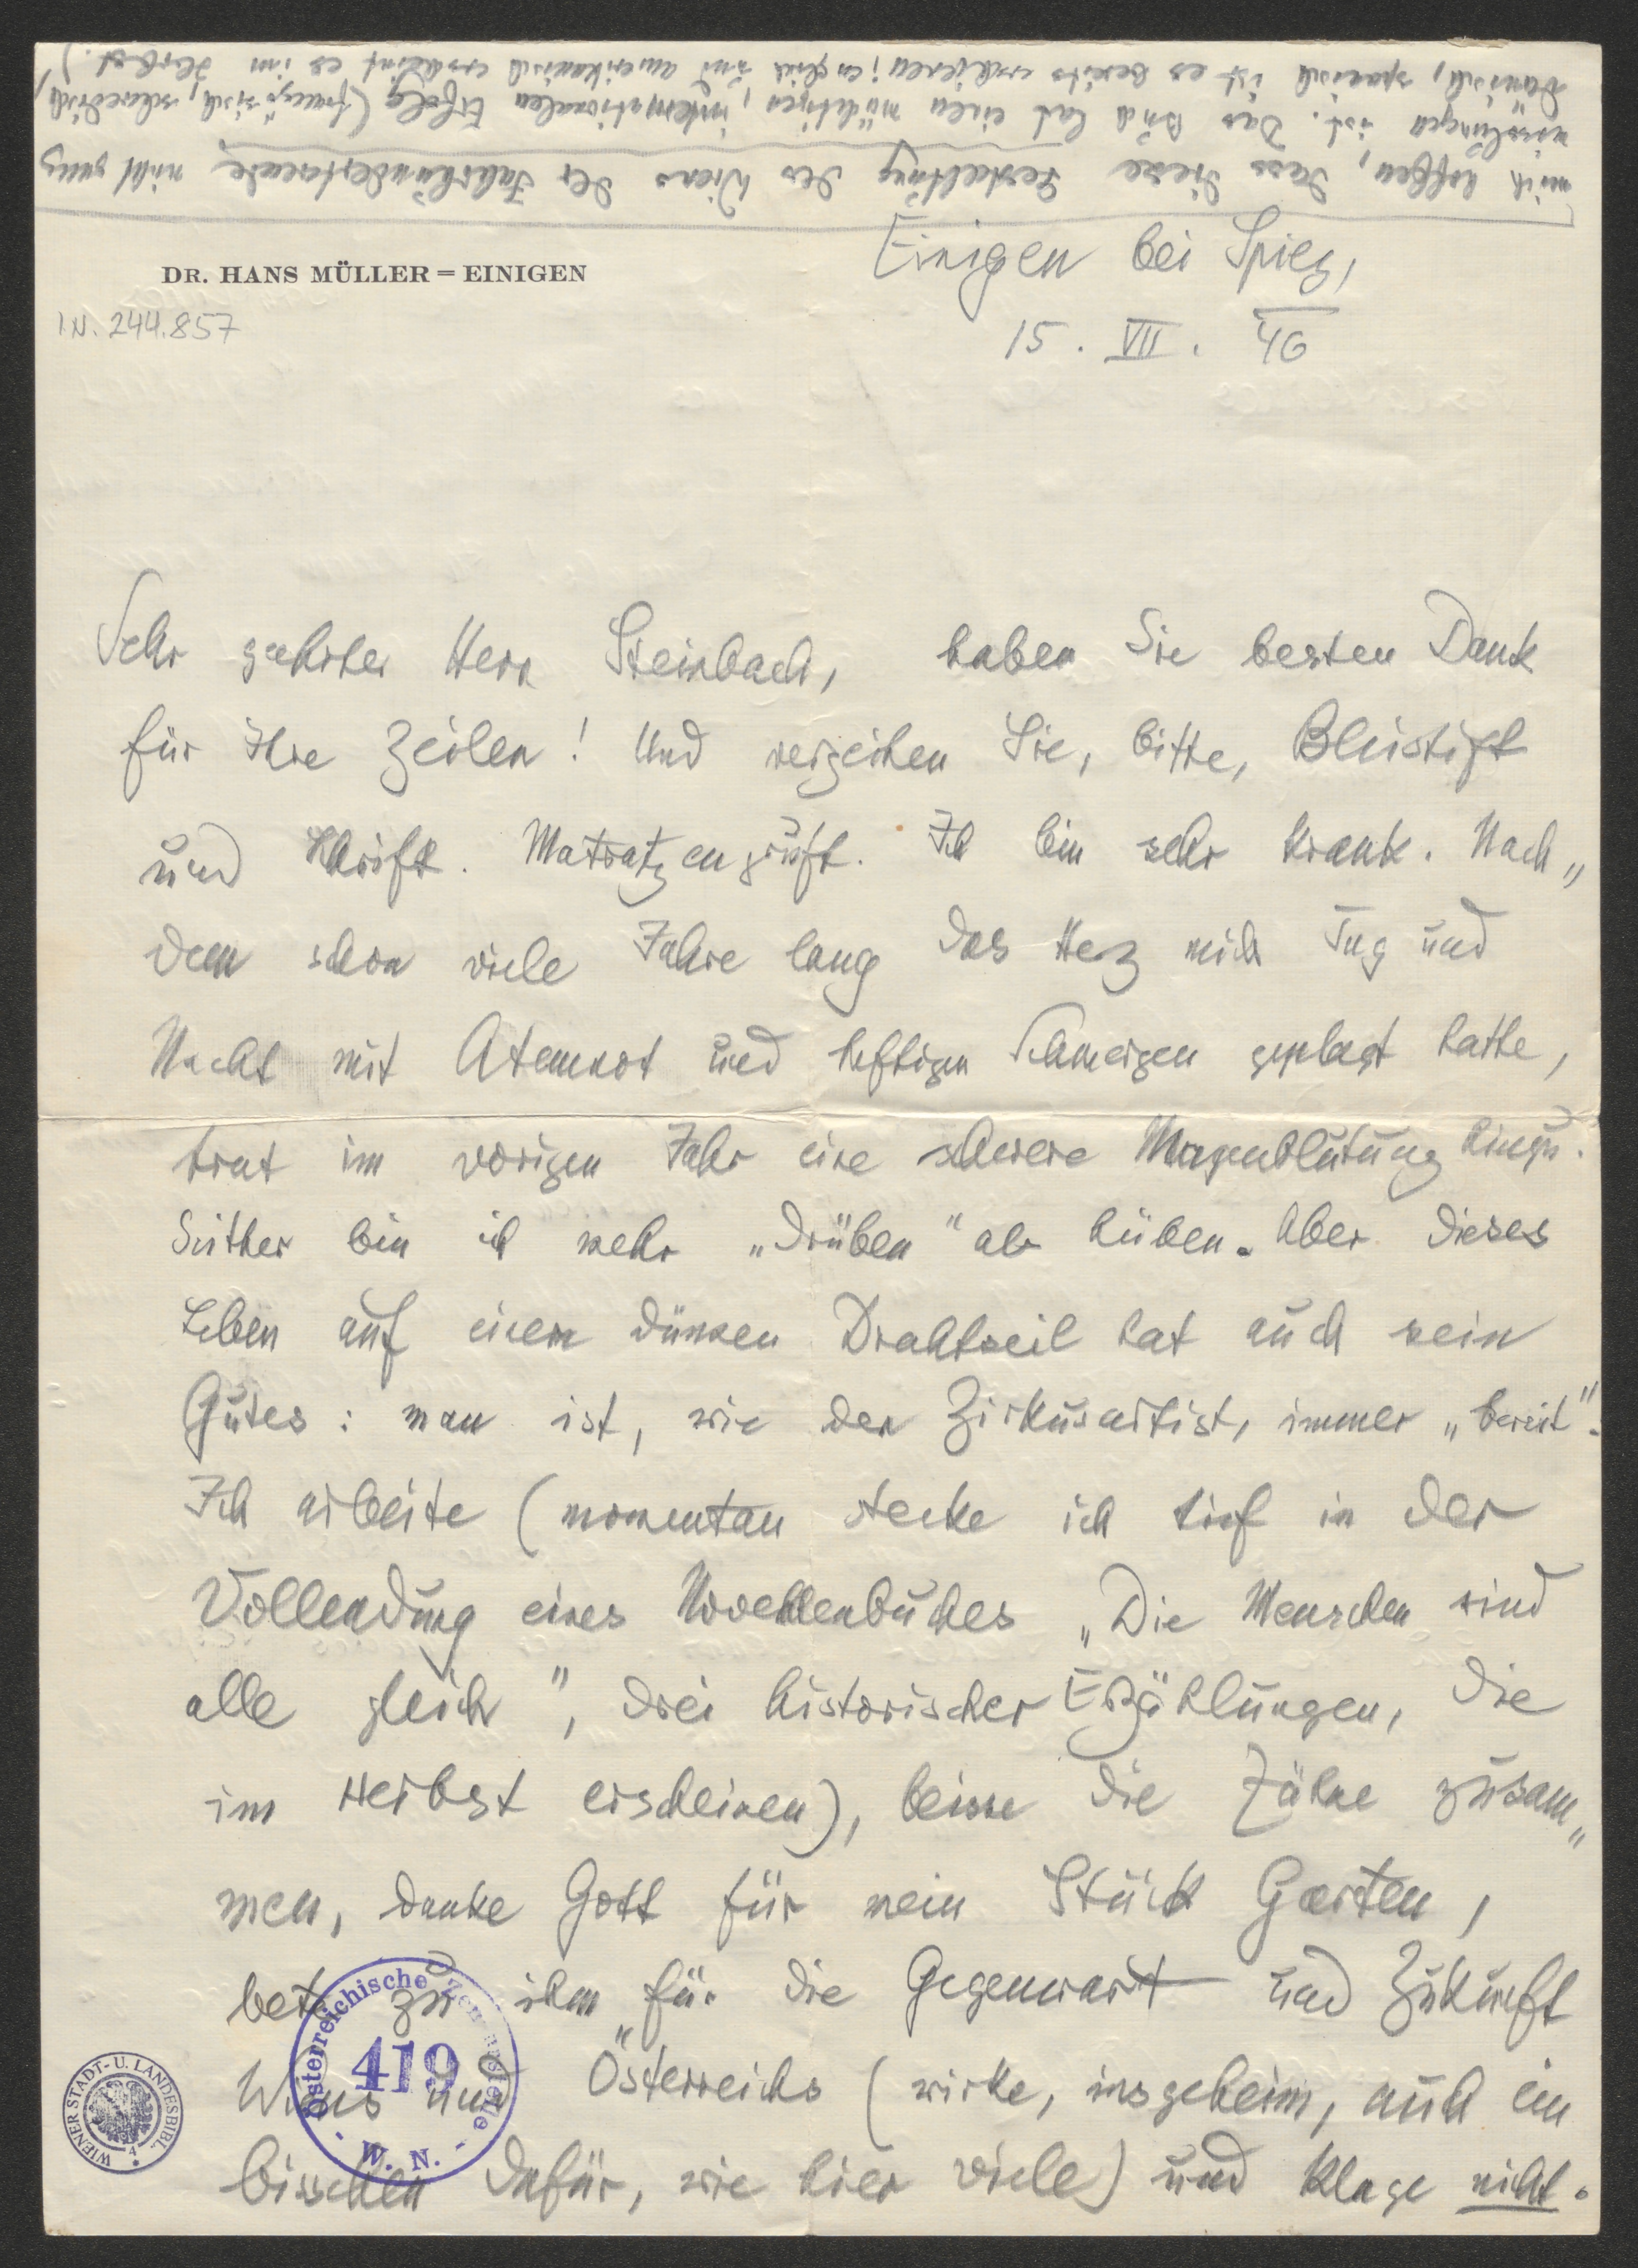 mich hoffen, dass diese Gestaltung des Wiens der Jahrhundertwende nicht ganz
misslungen ist. Das Buch hat einen mächtigen, internationalen Erfolg (französisch, schwedisch,
dänisch, spanisch ist es bereits erschienen; englisch und amerikanisch erscheint es im Herbst.)
DR. HANS MÜLLER=EINIGEN
Einigen bei Spiez,
15. VII. 46
I.N. 244.857
Sehr geehrter Herr Steinbach, haben Sie besten Dank
für Ihre Zeilen! Und verzeihen Sie, bitte, Bleistift
und Schrift. Matratzengruft. Ich bin sehr krank. Nach„
dem schon viele Jahre lang das Herz mich Tag und
Nacht mit Atemnot und heftigen Schmerzen geplagt hatte,
trat im vorigen Jahr eine schwere Magenblutung hinzu.
Seither bin ich mehr „drüben" als hüben. Aber dieses
Leben auf einem dünnen Drahtseil hat auch sein
Gutes: man ist, wie der Zirkusartist, immer „bereit".
Ich arbeite (momentan stecke ich tief in der
Vollendung eines Novellenbuches „Die Menschen sind
alle gleich", drei historischer Erzählungen, die
im Herbst erscheinen), beisse die Zähne zusam„
men, danke Gott für mein Stück Garten,
bete zu ihm für die Gegenwart und Zukunft
Wiens und Österreichs (wirke, insgeheim, auch ein
bisschen dafür, wie hier viele) und klage nicht.
Österreichische Zensurstelle
419
- W. N. -
WIENER STADT- U. LANDESBIBL.
4